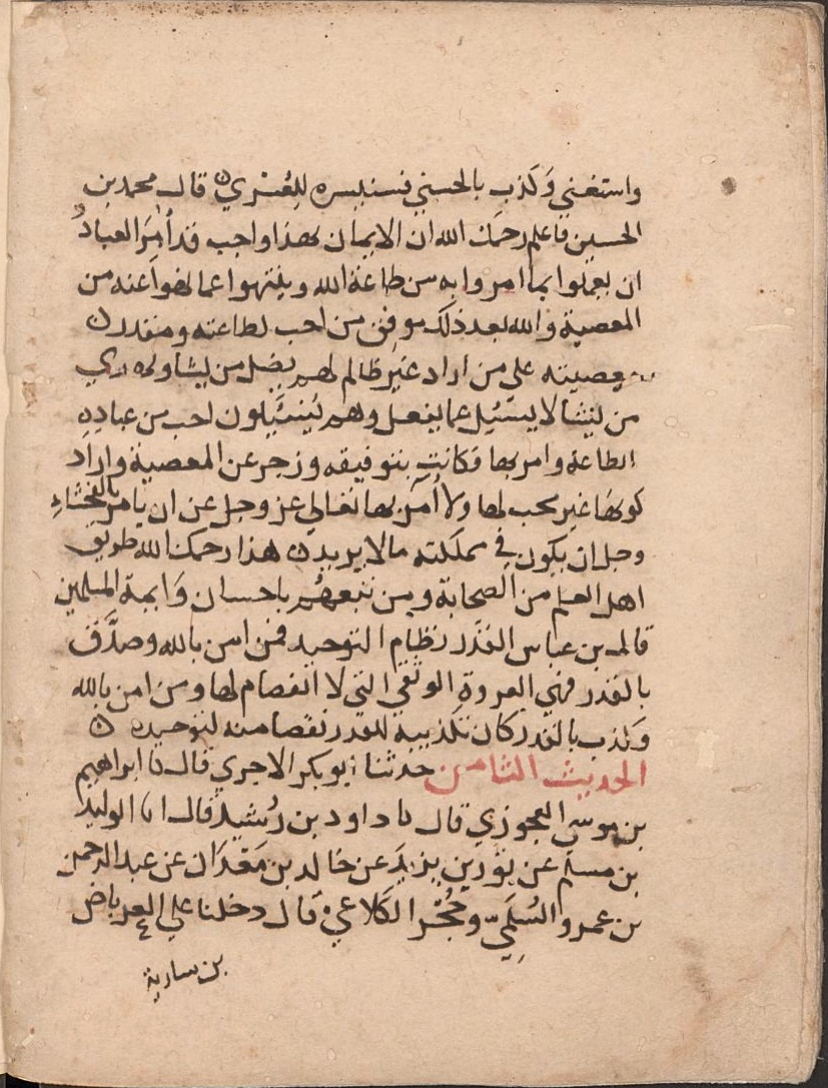 واستغني وكذب بالحسني فسنيسره للعسري ن قال محمد بن
الحسين فاعلم رحمك الله ان الايمان بهذا واجب قد أمر العباد
ان يعملوا بما امروا به من طاعة الله وينتهوا عما نهوا عنه من
المعصية والله بعد ذلك موفق من احب لطاعته ومقدر ن
معصيته علي من اراد غير ظالم لهم يضل من يشا ويهدي
من يشا لا يسئل عما يفعل وهم يسئلون احب من عباده
الطاعة وامر بها فكانت بتوفيقه وزجر عن المعصية واراد
كونها غير محب لها ولا آمر بها تعالي عز وجل عن ان يامر بالفحشاء
وجل ان يكون في مملكته مالا يريد ن هذا رحمك الله طريق
اهل العلم من الصحابة ومن تبعهم باحسان وايمة المسلمين
قال بن عباس القدر نظام التوحيد فمن امن بالله وصدّق
بالقدر فهي العروة الوثقي التي لا انفصام لها ومن امن بالله
وكذب بالقدر كان تكذيبه للقدر نقصا منه لتوحيده ن
الحديث الثامن حدثنا ابو بكر الاجري قال نا ابراهيم
بن موسي الجوزي قال نا داود بن رُشيد قال انا الوليد
بن مسلم عن ثور بن يزيد عن خالد بن معدان عن عبد الرحمن
بن عمرو السُلَمِيّ وحُجْر الكلاعي قال دخلنا علي العرباض
بن سارية